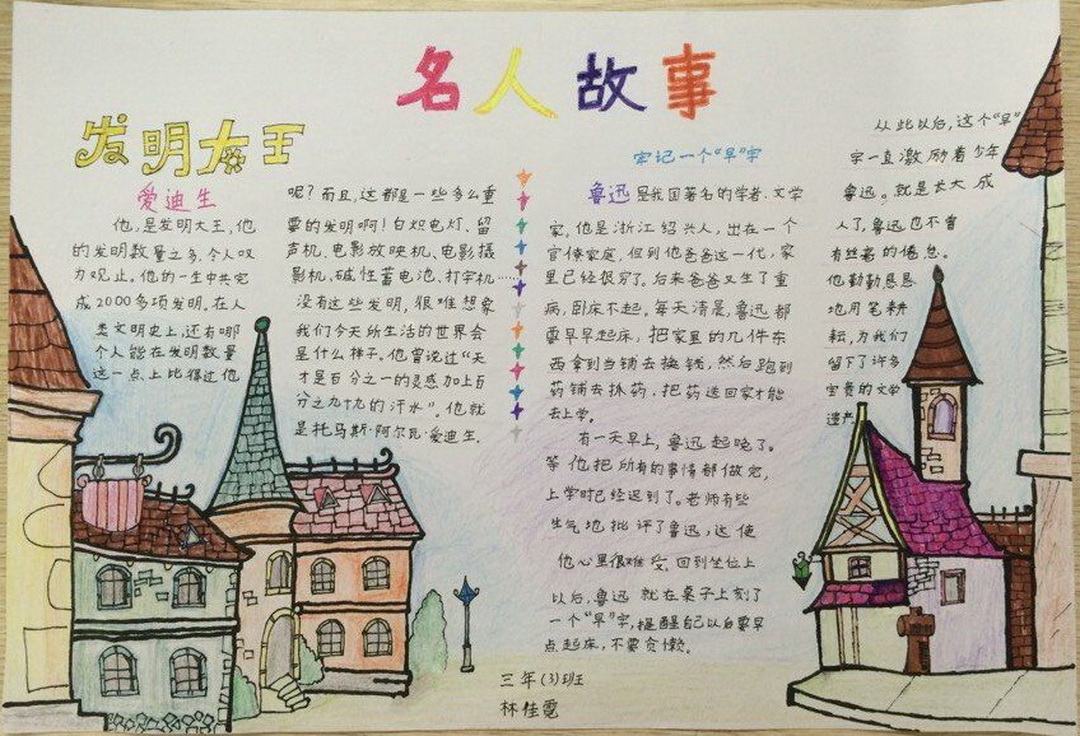 名人故事
发明大王
爱迪生
他,是发明大王,他
的发明数量之多,令人叹
为观止。他的一生中共完
成2000多项发明。在人
类文明史上,还有哪
个人能在发明数量
这一点上比得过他
呢?而且,这都是一些多么重
要的发明啊!白炽电灯、留
声机、电影放映机、电影摄
影机、碱性蓄电池、打字机……
没有这些发明,很难想象
我们今天所生活的世界会
是什么样子。他曾说过“天
才是百分之一的灵感加上百
分之九十九的汗水”。他就
是托马斯·阿尔瓦·爱迪生.
牢记一个“早”字
鲁迅是我国著名的学者、文学
家,他是浙江绍兴人,出在一个
官僚家庭,但到他爸爸这一代,家
里已经很穷了。后来爸爸又生了重
病,卧床不起。每天清晨,鲁迅都
要早早起床,把家里的几件东
西拿到当铺去换钱,然后跑到
药铺去抓药,把药送回家才能
去上学。
有一天早上,鲁迅起晚了。
等他把所有的事情都做完,
上学时已经迟到了。老师有些
生气地批评了鲁迅,这使
他心里很难受。回到坐位上
以后,鲁迅就在桌子上刻了
一个“早”字,提醒自己以后要早
点起床,不要贪懒。
从此以后,这个“早”
字一直激励着少年
鲁迅。就是长大成
人了,鲁迅也不曾
有丝毫的倦怠。
他勤勤恳恳
地用笔耕
耘,为我们
留下了许多
宝贵的文学
遗产。
三年(3)班
林佳霓